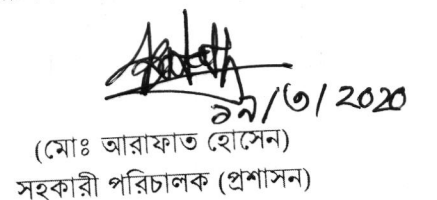 ১৯/৩/2020
(মোঃ আরাফাত হোসেন)
সহকারী পরিচালক (প্রশাসন)